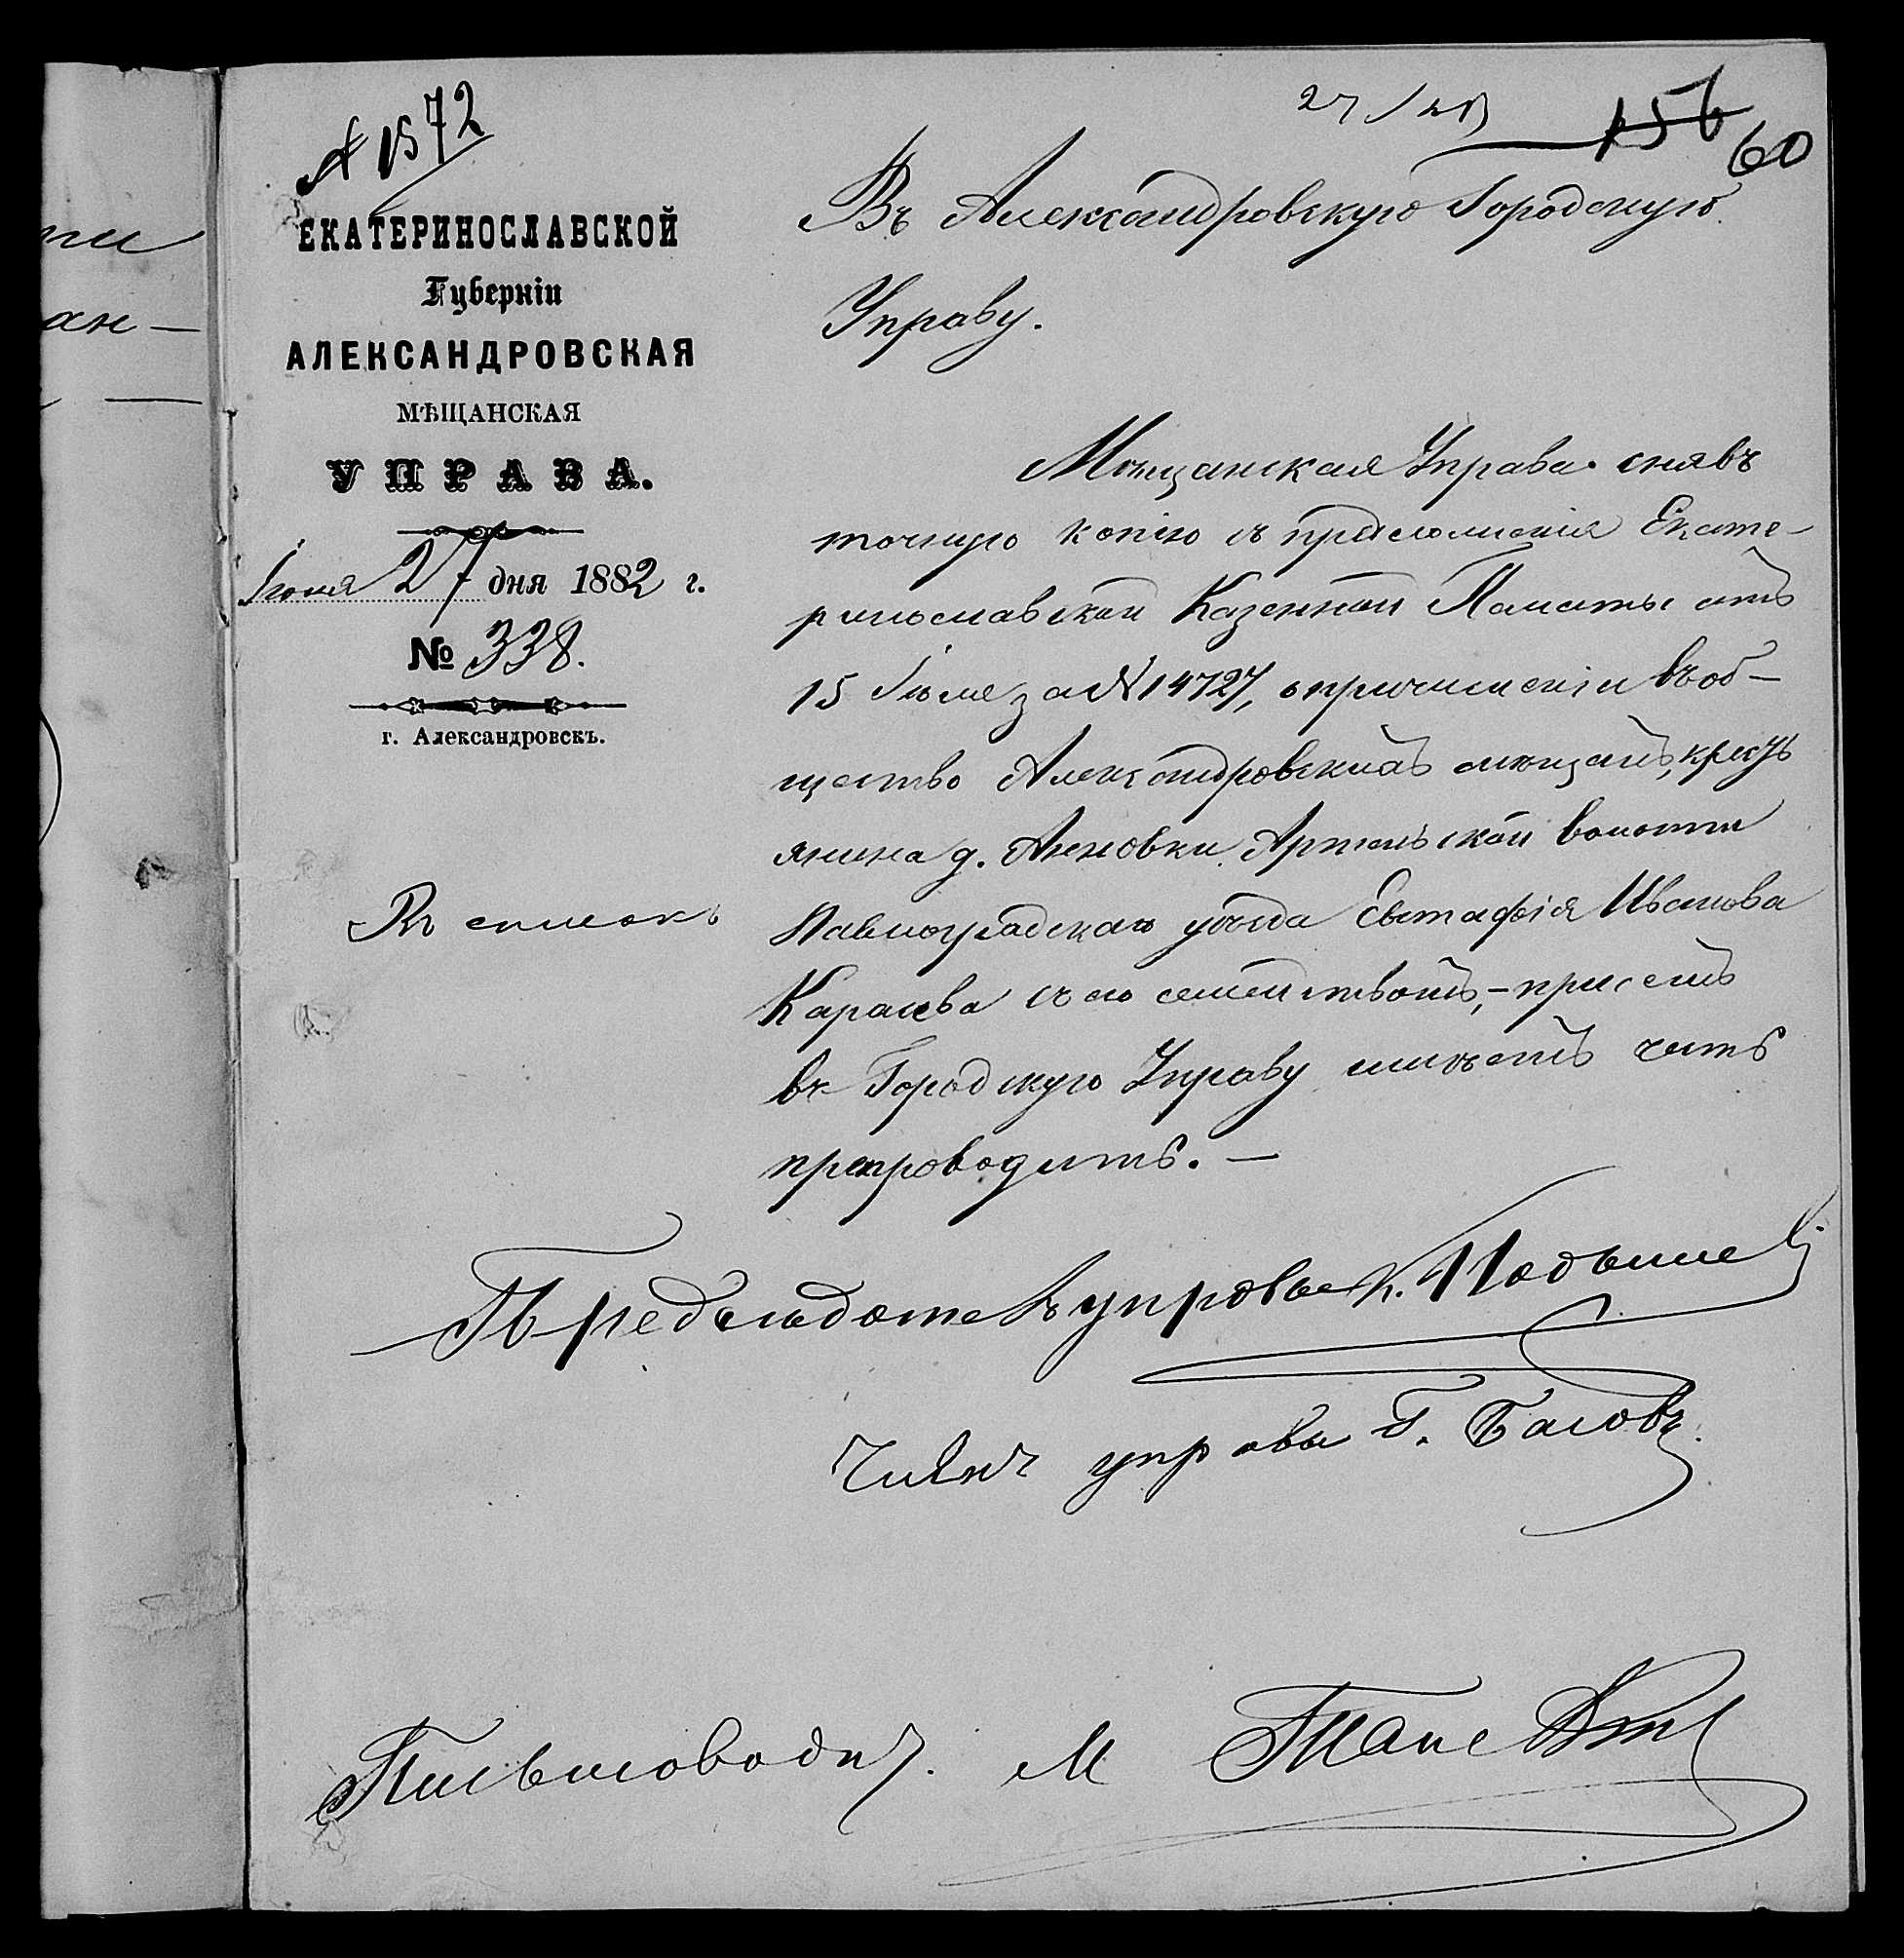 № 1572
27/
156
60
ЕКАТЕРИНОСЛАВСКОЙ
Губерніи
АЛЕКСАНДРОВСКАЯ
МѢЩАНСКАЯ
УПРАВА.
Іюня 27 дня 1882 г.
№ 338.
г. Александровскъ.
Въ Александровскую Городскую
Управу.
Мѣщанская Управа снявъ
точную копію съ предложенія Екате-
ринославской Казенной Палаты отъ
15 Іюня за № 14727, о причисленіи въ об-
щество Александровскихъ мѣщанъ, кресть
янина д. Анновки Артельской волости
Павлоградскаго уѣзда Евстафія Иванова
Караева съ его семействомъ, - при семъ
въ Городскую Управу имѣетъ честь
препроводить. -
Къ списокъ
Предсѣдатель управы
Членъ управы Г. Басовъ
Письмовод. М
ти
ан-